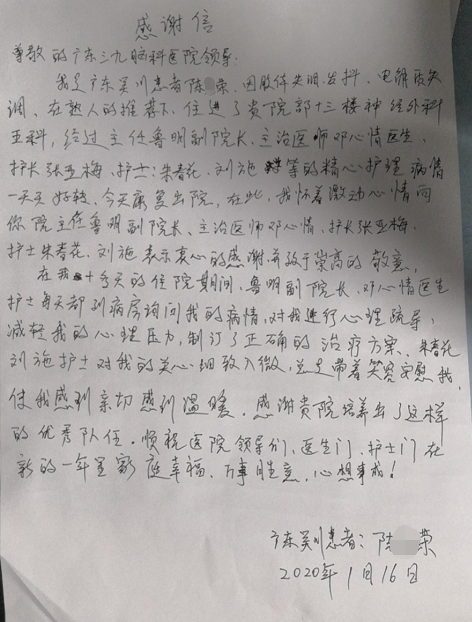 感谢信
尊敬的广东三九脑科医院领导:
我是广东吴川患者陈 荣,因肢体失明、发抖、电解质失
调、在熟人的推荐下,住进了贵院部十三楼神经外科
五科,经过主任鲁明副院长、主治医师邓心情医生、
护长张亚梅、护士:朱春花、刘施 等的精心护理病情
一天天好转,今天康复出院,在此,我怀着激动心情向
你院主任鲁明副院长、主治医师邓心情、护长张亚梅、
护士朱春花、刘施表示衷心的感谢并致于崇高的敬意,
在我十多天的住院期间,鲁明副院长、邓心情医生
护士每天都到病房询问我的病情,对我进行心理疏导,
减轻我的心理压力,制订了正确的治疗方案、朱春花
刘施护士对我的关心细致入微,总是带着笑容安慰我,
使我感到亲切感到温暖。感谢贵院培养出了这样
的优秀队伍。顺祝医院领导们、医生门、护士门在
新的一年里家庭幸福、万事胜意,心想事成!
广东吴川患者:陈 荣
2020年1月16日